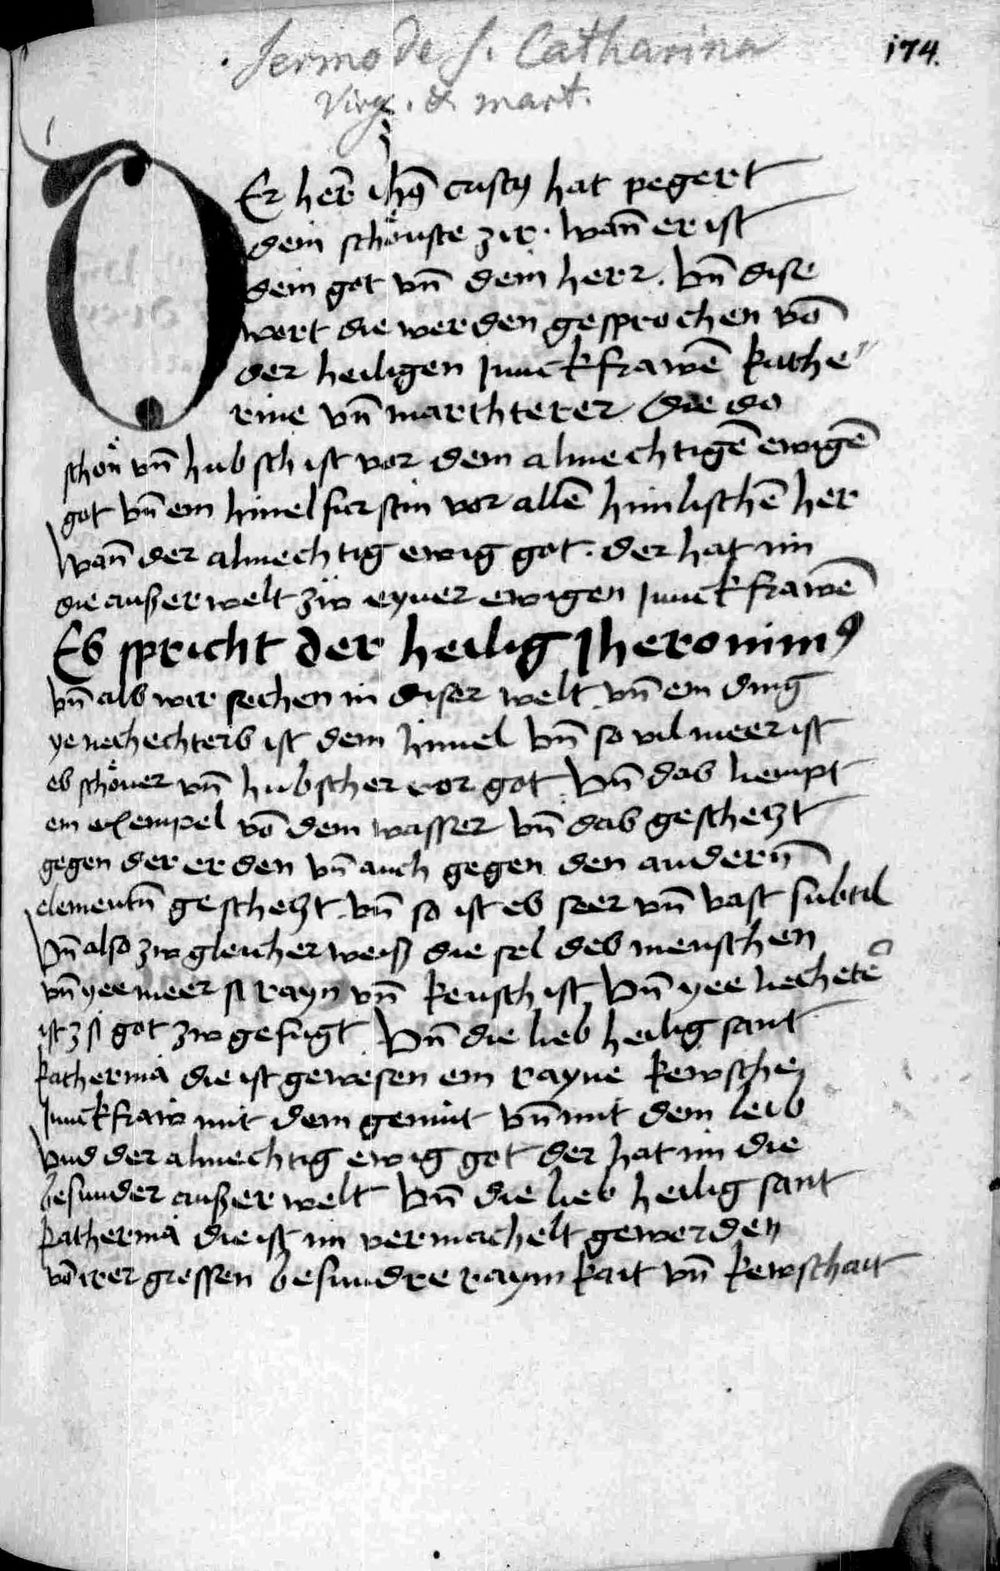 Sermo de S. Catharina
Virg. & mart.
174.
DEr her̄ ihs̄ cristꝯ hat pegert
dein schöuste zir. wan̄ er ist
dein got vn̄ dein herr. Vn̄ dise
wort die werden gesprochen vō
der heiligen Junckfrawē kathe
rine vn̄ marthterer die do
schön vn̄ hubsch ist vor dem almechtigē ewigē
got vn̄ ein himel furstin vor allē himlischē her
Wan̄ der almechtig ewig got. der hat im
die außerwelt zw eyner ewigen Junckfrawē
Es spricht der heilig Jheronimꝯ
vn̄ als wir sechen in diser welt vn̄ ein ding
ye ist dem himel vn̄ so vil meer ist
es schöner vn̄ hubscher vor got. Vn̄ das nempt
ein exempel vō dem wasser vn̄ das geschetzt
gegen der erden vn̄ auch gegen den andern̄
elementn̄ geschetzt vn̄ so ist es seer vn̄ vast subtil
Vn̄ also zw gleicher weiß die sel des menschen
vn̄ yee meer si rayn vn̄ keusch ist Vn̄ yee
ist si got zw gefugt Vn̄ die lieb heilig sant
katherina die ist gewesen ein rayne kewsche
Junckfraw mit dem gemüt vn̄ mit dem leib
Vnd der almechtig ewig got der hat im die
besunder außerwelt Vn̄ die lieb heilig sant
katherina die ist im vermachelt geworden
vō irer grossen besundre raymkait vn̄ kewschait